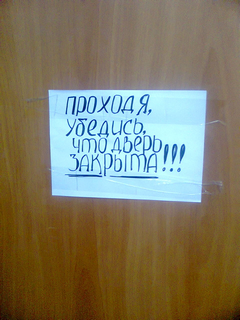 ПРОХОДЯ,
УБЕДИСЬ,
ЧТО ДВЕРЬ
ЗАКРЫТА!!!